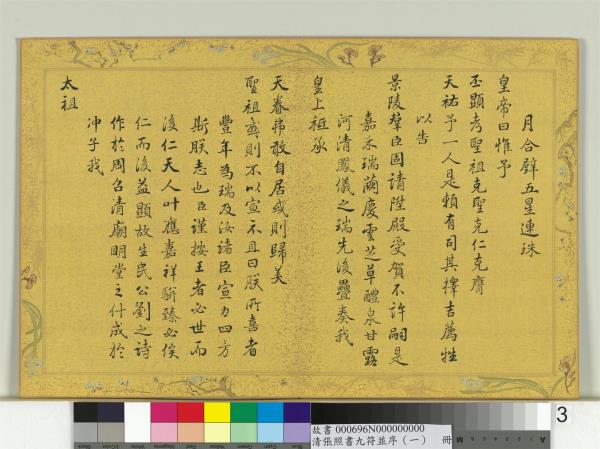 月合璧五星連珠
皇帝曰惟予
丕顯考聖祖克聖克仁克膺
天祐予一人是賴有司其擇吉薦牲
以告
景陵羣臣固請陞殿受賀不許嗣是
嘉禾瑞繭慶雲芝草醴泉甘露
河清鳳儀之瑞先後疊奏我
皇上祗承
天眷弗敢自居或則歸美
聖祖或則不以宣示且曰朕所喜者
豐年為瑞及汝諸臣宣力四方
斯朕志也臣謹按王者必世而
後仁天人叶應嘉祥駢臻必俟
仁而後益顯故生民公劉之詩
作於周召清廟明堂之什成於
沖子我
太祖
3
故書 000696N000000000
清張照書九符並序（一） 冊